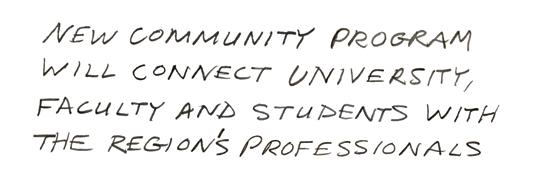 NEW COMMUNITY PROGRAM
WILL CONNECT UNIVERSITY,
FACULTY AND STUDENTS WITH
THE REGION'S PROFESSIONALS